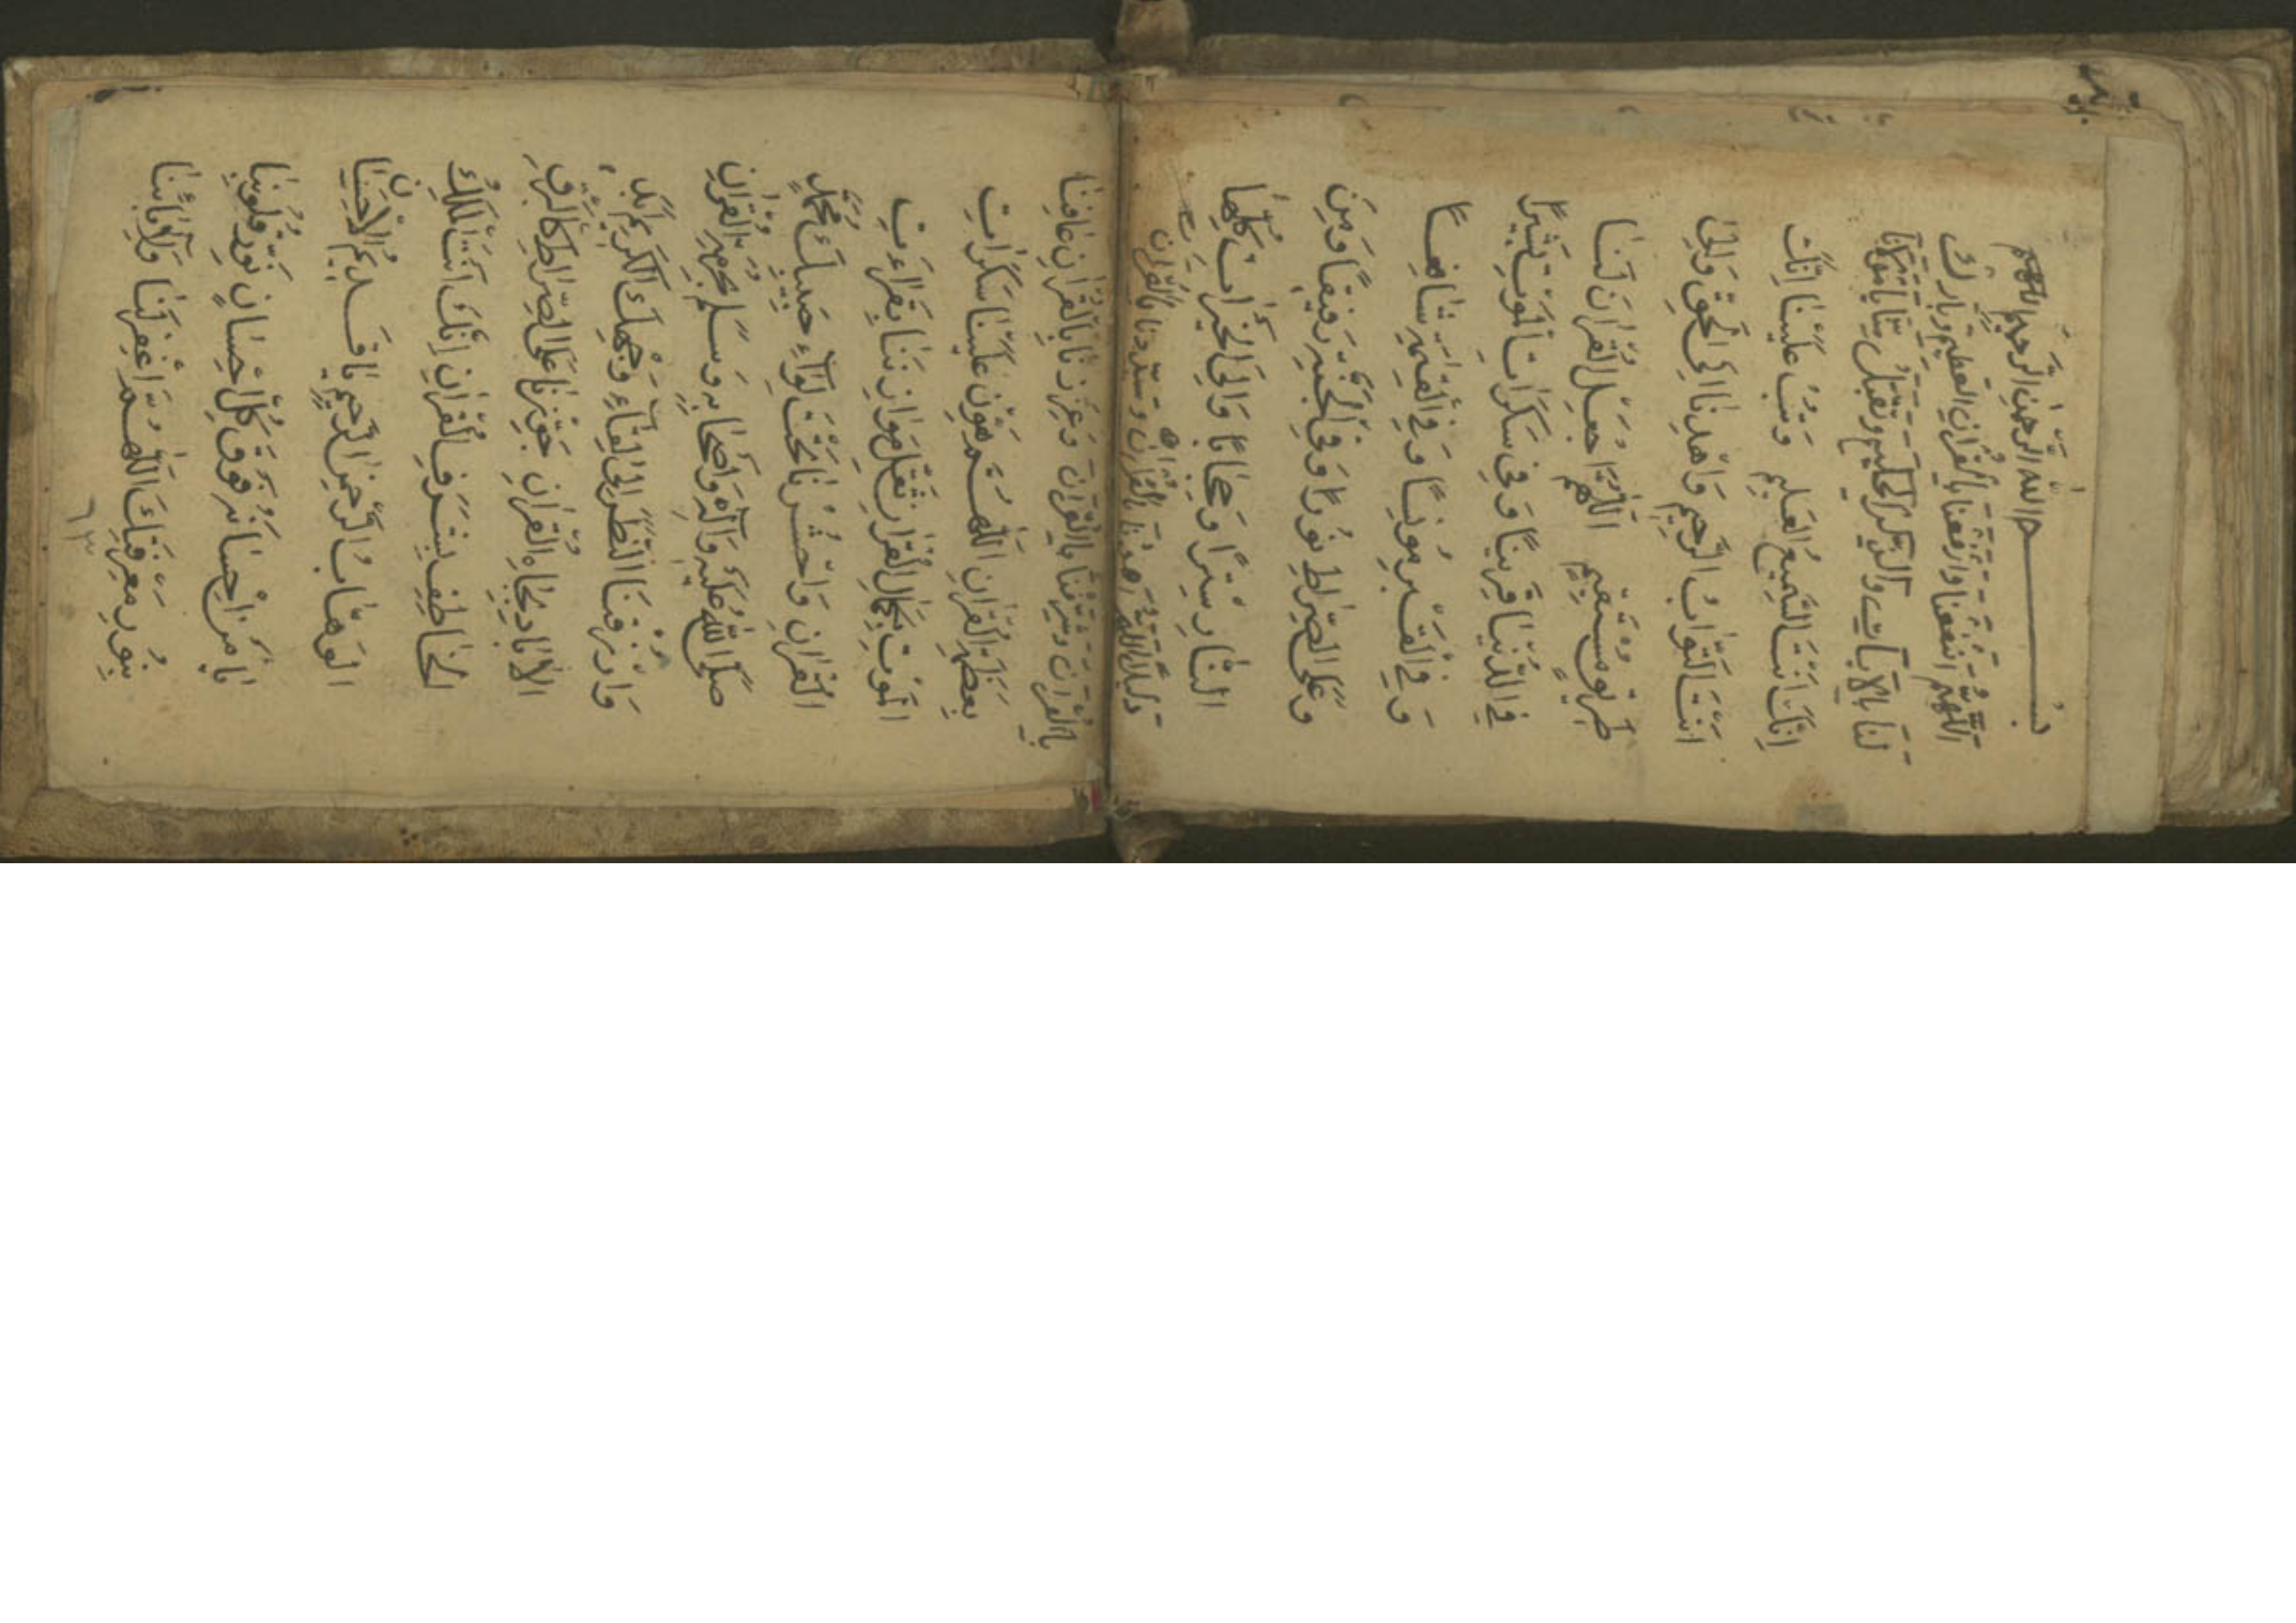 بسم الله الرحمن الرحيم اللهم
اللهم انفعنا وارفعنا بالقرآن العظيم وبارك
لنا بالآيات والذكر الحكيم وتقبل منا يا مولانا
إنك أنت السميع العليم وتب علينا إنك
أنت التواب الرحيم واهدنا إلى الحق وإلى
طريق مستقيم اللهم اجعل القرآن لنا
في الدنيا قرينا وفي سكرات الموت بشيرا
وفي القبر مونسا وفي القيمة شافعا
وعلى الصراط نورا وفي الجنة رفيقا ومن
النار سترا وحجابا وإلى الخيرات كلها
دليلا اللهم اهدنا بالقرآن وسددنا بالقرآن
بالقرآن وشرفنا بالقرآن وعززنا بالقرآن عافنا
بعظمة القرآن اللهم هون علينا سكرات
الموت بكمال القرآن ثقل موازيننا بقراءت
القرآن واحشرنا تحت لوآء حبيبك محمد
صلى الله عليه وآله وأصحابه وسلم بحرمة القرآن
وارزقنا النظر إلى لقاء وجهك الكريم ببركة
القرآن جوزنا على الصراط كالبرق
الخاطف بشرف القرآن إنك أنت الملك
الوهاب الرحمن الرحيم يا قديم الإحسان
يا من إحسانه فوق كل إحسان نور قلوبنا
بنور معرفتك اللهم اغفر لنا ولآبائنا
٦٣